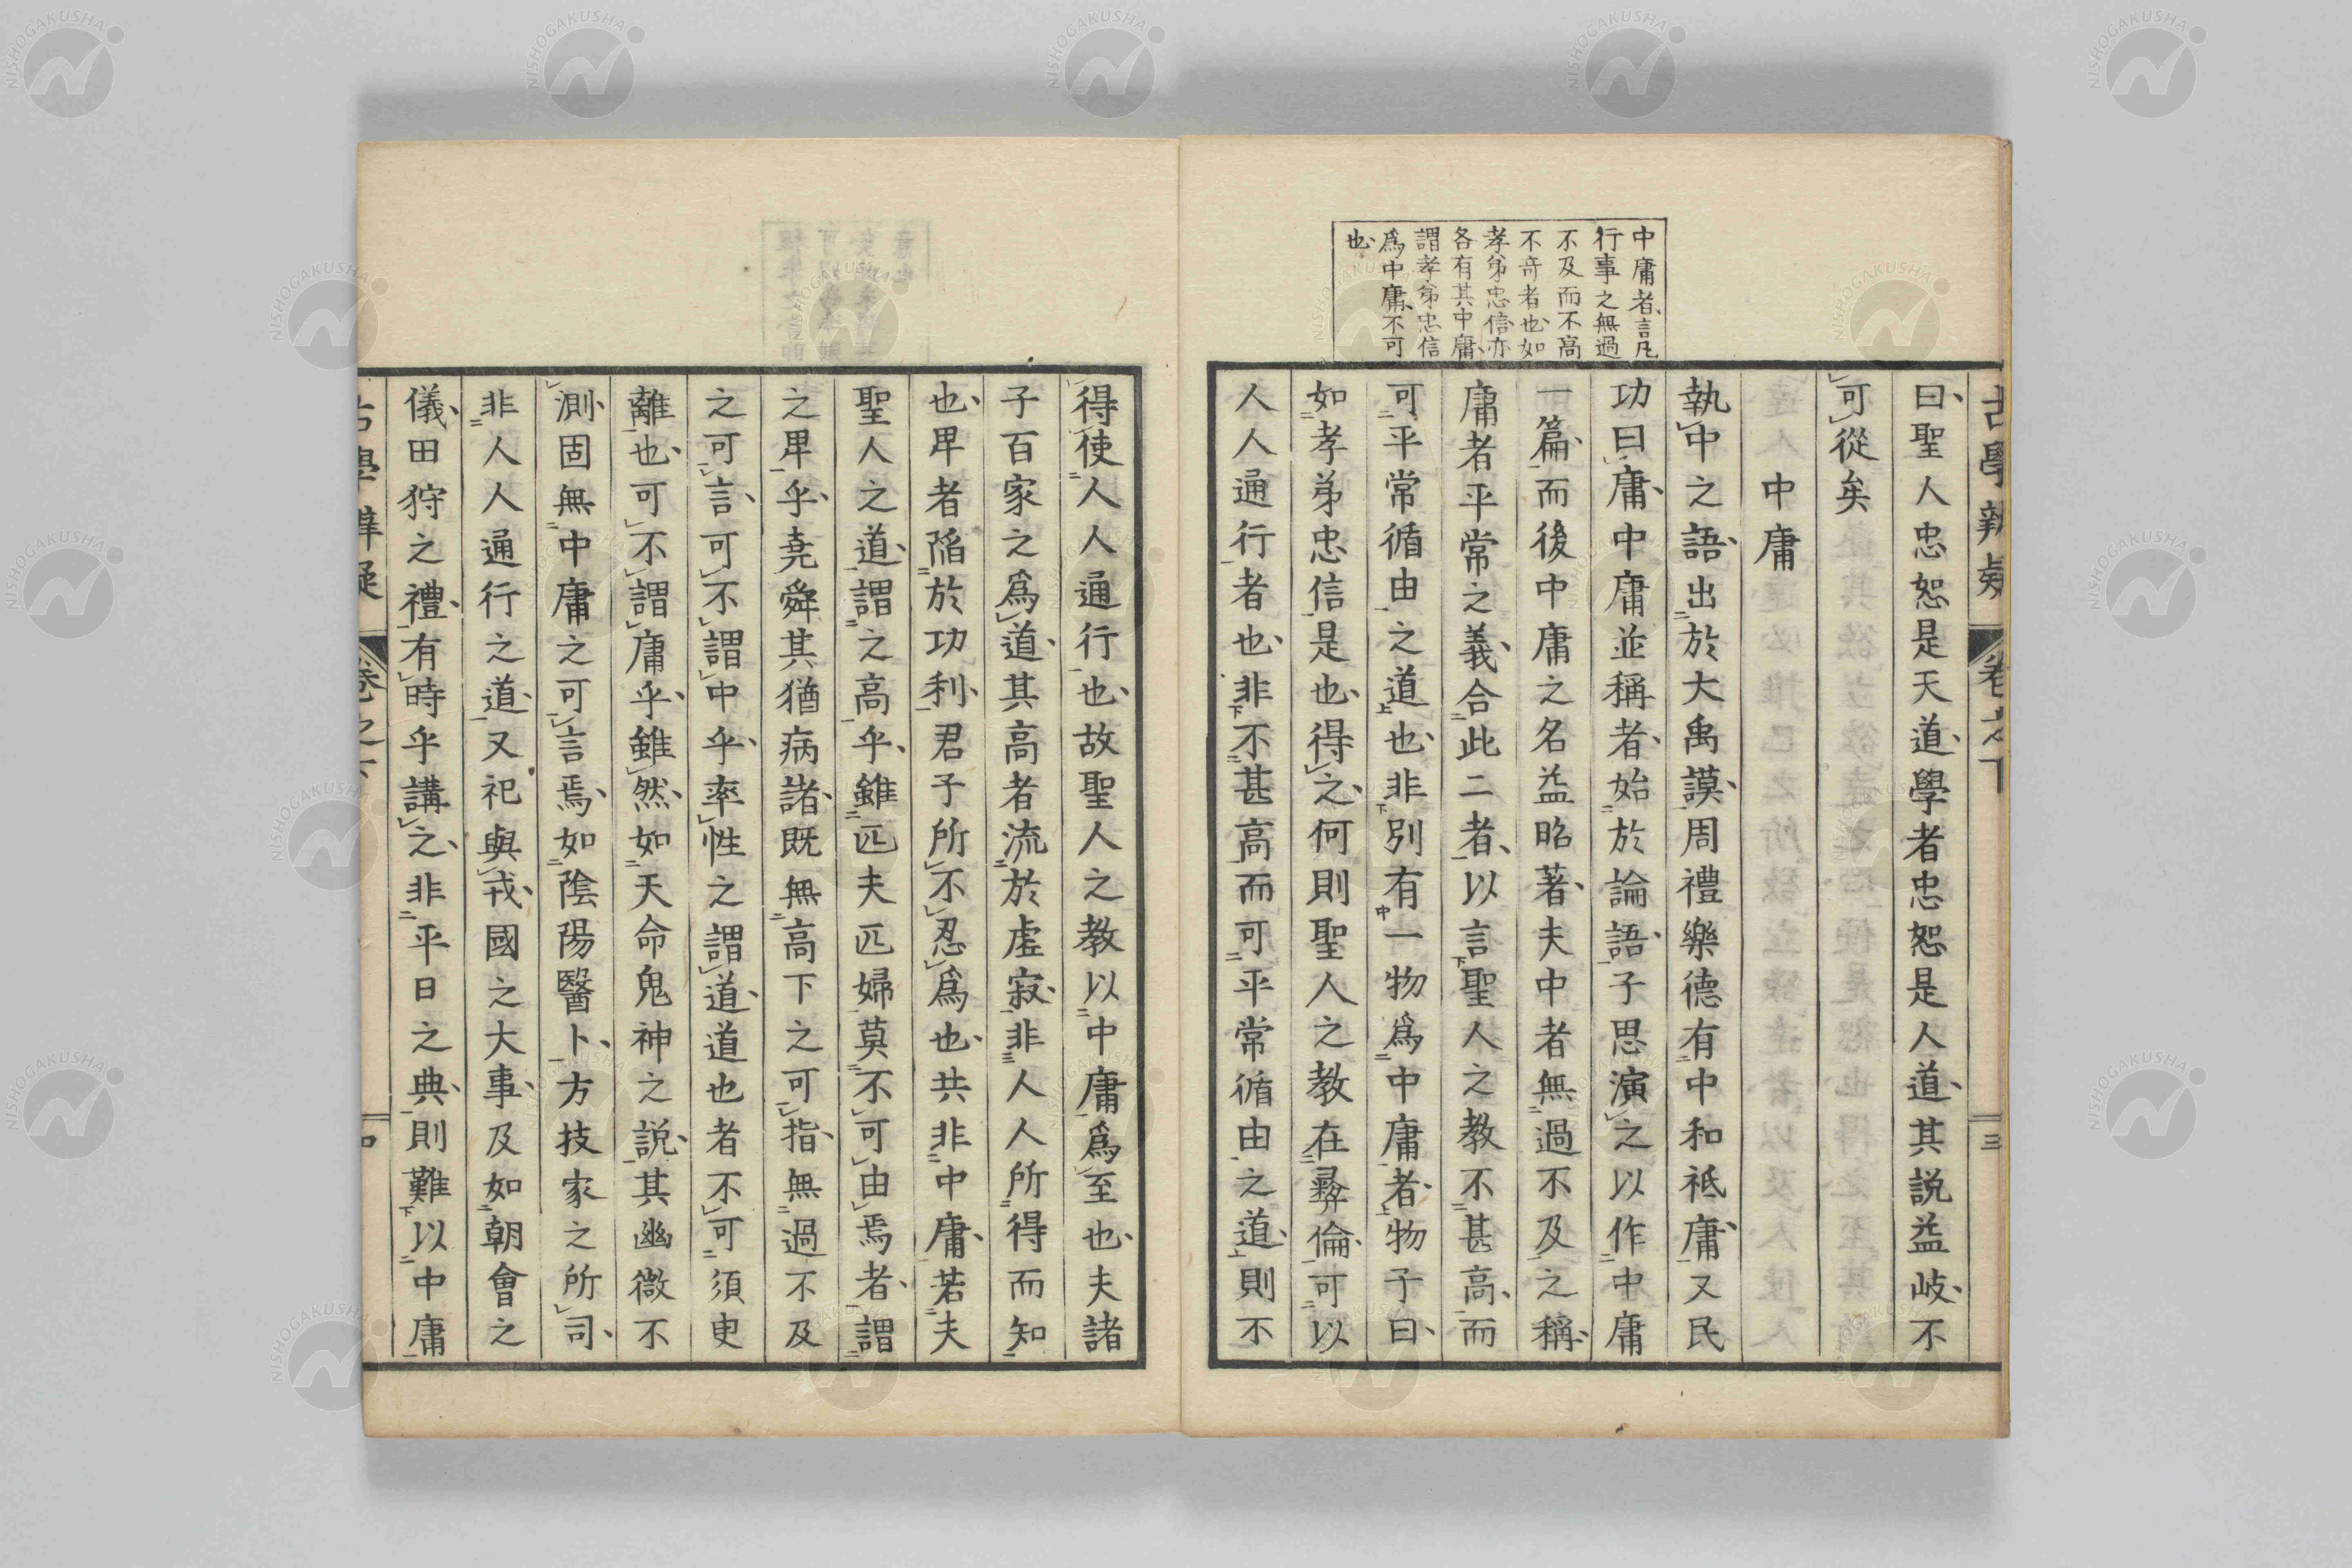 古學辨疑 卷之下 三
曰聖人忠恕是天道學者忠恕是人道其説益岐不
可從矣
中庸
執中之語出於大禹謨周禮樂德有中和祗庸又民
功曰庸中庸並稱者始於論語子思演之以作中庸
一篇而後中庸之名益昭著夫中者無過不及之稱
庸者平常之義合此二者以言聖人之教不甚高而
可平常循由之道也非別有一物爲中庸者物子曰
如孝弟忠信是也得之何則聖人之教在彛倫可以
人人通行者也非不甚高而可平常循由之道則不
中庸者言凡
行事之無過
不及而不高
不奇者也如
孝弟忠信亦
各有其中庸
謂孝弟忠信
爲中庸不可
也
得使人人通行也故聖人之教以中庸爲至也夫諸
子百家之爲道其高者流於虛寂非人人所得而知
也卑者陷於功利君子所不忍爲也共非中庸若夫
聖人之道謂之高乎雖匹夫匹婦莫不可由焉者謂
之卑乎堯舜其猶病諸既無高下之可指無過不及
之可言可不謂中乎率性之謂道道也者不可須臾
離也可不謂庸乎雖然如天命鬼神之説其幽微不
測固無中庸之可言焉如陰陽醫卜方技家之所司
非人人通行之道又祀與戎國之大事及如朝會之
儀田狩之禮有時乎講之非平日之典則難以中庸
古學辨疑 卷之下 四
NISHOGAKUSHA